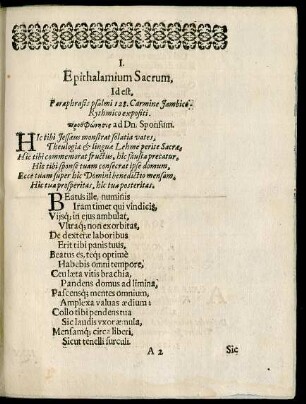 I.
Epithalamium Sacrum,
Id est,
Paraphrasis psalmi 128. Carmine Jambico-
Rythmico expositi.
προσφώνησις ad Dn. Sponsum.
HIc tibi Jessæus monstrat solatia vates,
Theologiæ & linguæ Lehme perite Sacræ,
Hic tibi commemorat fructus, hic fausta precatur,
Hic tibi sponsæ tuam consecrat ipse domum,
Ecce tuam super hic Domini benedicto mensam,
Hic tua prosperitas, hic tua posteritas.
BEatus ille, numinis
Iram timet qui vindicis,
Vijsq; in ejus ambulat,
Vltraq; non exorbitat,
De dexteræ laboribus
Erit tibi panis tuus,
Beatus es, toq; optimè
Habebis omni tempore,
Ceu læta vitis brachia,
Pandens domus ad limina,
Pascensq; mentes omnium,
Amplexa valvas ædium:
Collo tibi pendens tua
Sic laudis vxor æmula,
Mensamq; circa liberi,
Sicut tenelli surculi.
A 2
Sic